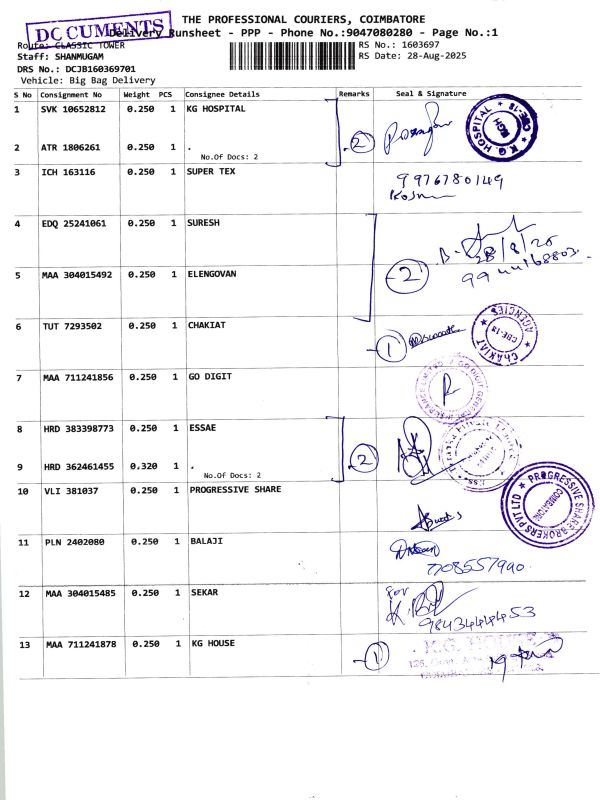 DOCUMENTS
THE PROFESSIONAL COURIERS, COIMBATORE
Delivery Runsheet - PPP - Phone No.:9047080280 - Page No.:1
Route: CLASSIC TOWER
RS No.: 1603697
Staff: SHANMUGAM
RS Date: 28-Aug-2025
DRS No.: DCJB160369701
Vehicle: Big Bag Delivery
S No Consignment No Weight PCS Consignee Details Remarks Seal & Signature
1 SVK 10652812 0.250 1 KG HOSPITAL
2 ATR 1806261 0.250 1 .
No.Of Docs: 2
2
K.G. HOSPITAL ★ CBE-18 ★
KGH
3 ICH 163116 0.250 1 SUPER TEX
9976780149
4 EDQ 25241061 0.250 1 SURESH
28/8/25
9944168803
2
5 MAA 304015492 0.250 1 ELENGOVAN
6 TUT 7293502 0.250 1 CHAKIAT
1
CHAKIAT ★ AGENCIES ★
CBE-18
7 MAA 711241856 0.250 1 GO DIGIT
8 HRD 383398773 0.250 1 ESSAE
9 HRD 362461455 0.320 1 .
No.Of Docs: 2
2
10 VLI 381037 0.250 1 PROGRESSIVE SHARE
★ PROGRESSIVE SHARE BROKERS PVT LTD
COIMBATORE
11 PLN 2402080 0.250 1 BALAJI
7708557990
12 MAA 304015485 0.250 1 SEKAR
for
9843444453
13 MAA 711241878 0.250 1 KG HOUSE
1
K.G. HOUSE